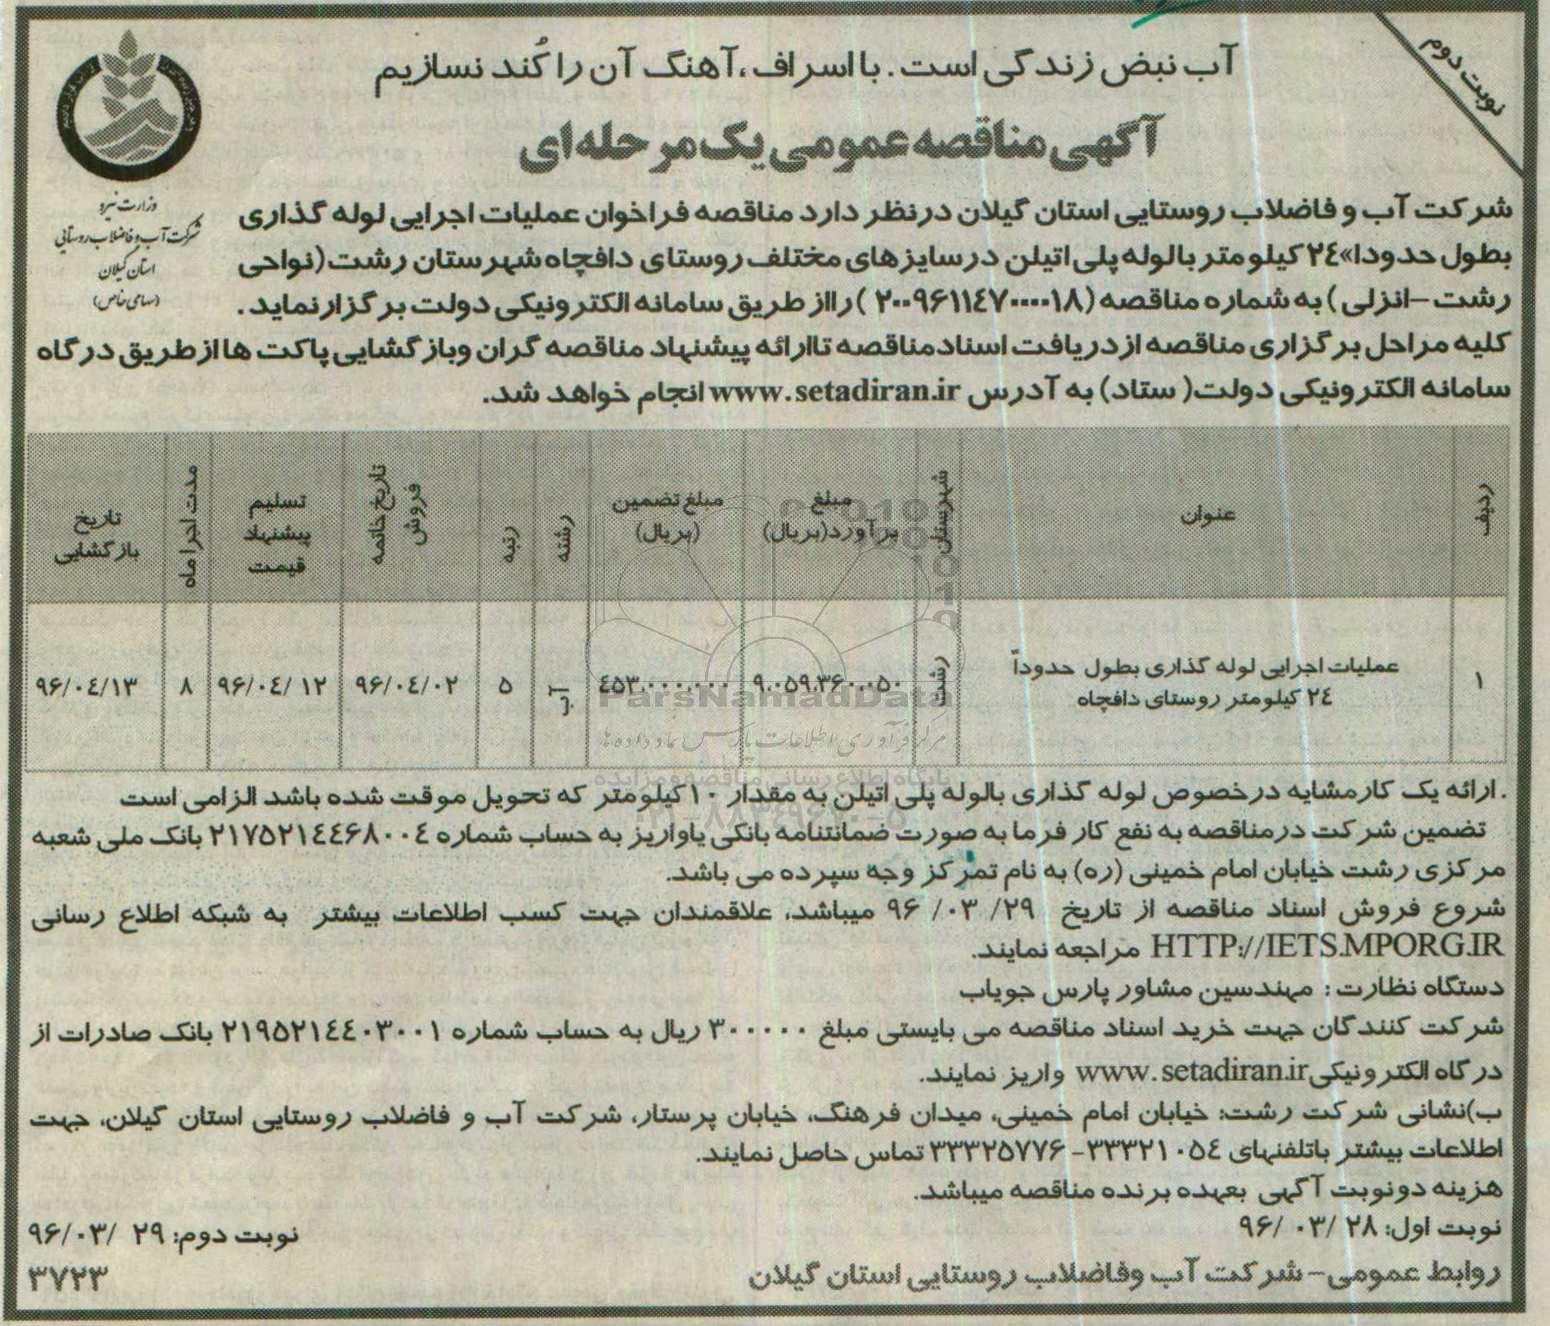 نوبت دوم
آب نبض زندگی است. با اسراف، آهنگ آن را کُند نسازیم
آگهی مناقصه عمومی یک مرحله‌ای
وزارت نیرو
شرکت آب و فاضلاب روستایی
استان گیلان
(سهامی خاص)
شرکت آب و فاضلاب روستایی استان گیلان درنظر دارد مناقصه فراخوان عملیات اجرایی لوله گذاری
بطول حدودا»۲۴ کیلومتر بالوله پلی اتیلن در سایزهای مختلف روستای دافچاه شهرستان رشت (نواحی
رشت –انزلی) به شماره مناقصه (۲۰۰۹۶۱۱۴۷۰۰۰۰۱۸) رااز طریق سامانه الکترونیکی دولت برگزارنماید.
کلیه مراحل برگزاری مناقصه از دریافت اسناد مناقصه تاارائه پیشنهاد مناقصه گران وبازگشایی پاکت ها ازطریق درگاه
سامانه الکترونیکی دولت( ستاد) به آدرس www.setadiran.ir انجام خواهد شد.
ردیف | عنوان | شهرستان | مبلغ برآورد(بریال) | مبلغ تضمین (بریال) | رشته | رتبه | تاریخ خاتمه فروش | تسلیم پیشنهاد قیمت | مدت اجرا ماه | تاریخ بازگشایی
۱ | عملیات اجرایی لوله گذاری بطول حدوداً ۲۴ کیلومتر روستای دافچاه | رشت | ۹.۰۵۹.۳۶۰.۰۵۰ | ۴۵۳.۰۰۰.۰۰۰ | آب | ۵ | ۹۶/۰۴/۰۲ | ۹۶/۰۴/ ۱۲ | ۸ | ۹۶/۰۴/۱۳
ParsNamadData
مرکز فرآوری اطلاعات پارس نماد داده ها
پایگاه اطلاع رسانی مناقصه و مزایده
. ارائه یک کارمشابه درخصوص لوله گذاری بالوله پلی اتیلن به مقدار ۱۰ کیلومتر که تحویل موقت شده باشد الزامی است
تضمین شرکت درمناقصه به نفع کار فرما به صورت ضمانتنامه بانکی یاواریز به حساب شماره ۲۱۷۵۲۱۴۴۶۸۰۰۴ بانک ملی شعبه
مرکزی رشت خیابان امام خمینی (ره) به نام تمرکز وجه سپرده می باشد.
شروع فروش اسناد مناقصه از تاریخ ۲۹/ ۰۳/ ۹۶ میباشد، علاقمندان جهت کسب اطلاعات بیشتر به شبکه اطلاع رسانی
HTTP://IETS.MPORG.IR مراجعه نمایند.
دستگاه نظارت : مهندسین مشاور پارس جویاب
شرکت کنندگان جهت خرید اسناد مناقصه می بایستی مبلغ ۳۰۰۰۰۰ ریال به حساب شماره ۲۱۹۵۲۱۴۴۰۳۰۰۱ بانک صادرات از
درگاه الکترونیکی www.setadiran.ir واریز نمایند.
ب)نشانی شرکت رشت: خیابان امام خمینی، میدان فرهنگ، خیابان پرستار، شرکت آب و فاضلاب روستایی استان گیلان، جهت
اطلاعات بیشتر باتلفنهای ۳۳۳۲۱۰۵۴- ۳۳۳۲۵۷۷۶ تماس حاصل نمایند.
هزینه دونوبت آگهی بعهده برنده مناقصه میباشد.
نوبت اول: ۲۸ /۰۳ /۹۶
نوبت دوم: ۲۹ /۹۶/۰۳
روابط عمومی- شرکت آب وفاضلاب روستایی استان گیلان
۳۷۲۳